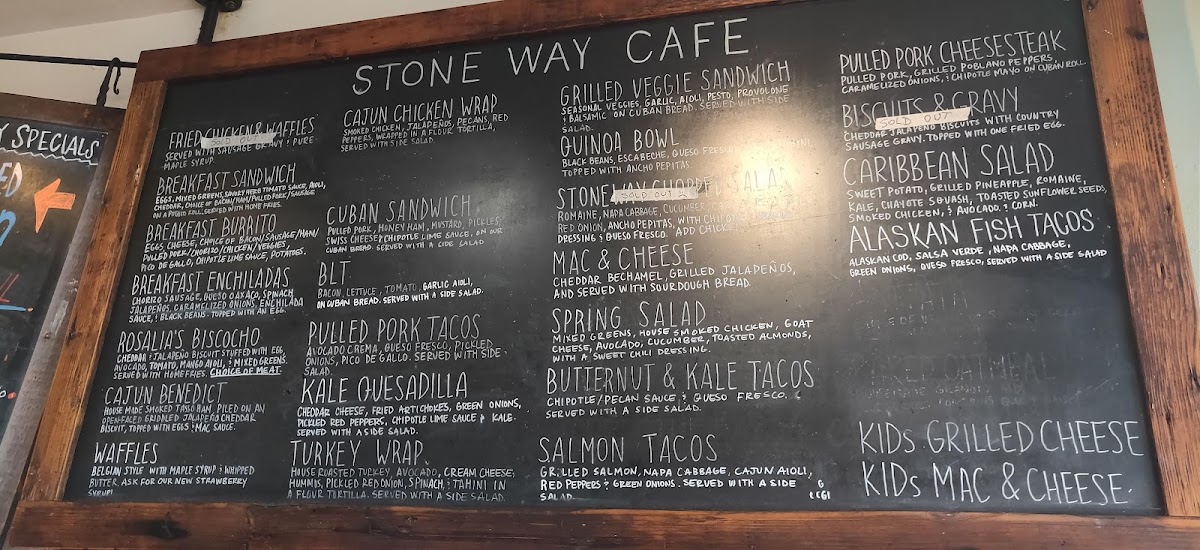 Y SPECIALS
STONE WAY CAFE
FRIED CHICKEN & WAFFLES
SOLD OUT
SERVED WITH SAUSAGE GRAVY & PURE
MAPLE SYRUP.
BREAKFAST SANDWICH
EGGS, MIXED GREENS, SAVORY HERB TOMATO SAUCE, AIOLI,
CHEDDAR, CHOICE OF BACON/HAM/PULLED PORK/SAUSAGE
ON A POTATO ROLL, SERVED WITH HOME FRIES.
BREAKFAST BURRITO
EGGS, CHEESE, CHOICE OF BACON/SAUSAGE/HAM/
PULLED PORK/CHORIZO/CHICKEN/VEGGIES,
PICO DE GALLO, CHIPOTLE LIME SAUCE, POTATOES.
BREAKFAST ENCHILADAS
CHORIZO SAUSAGE, QUESO OAXACO, SPINACH
JALAPEÑOS, CARAMELIZED ONIONS, ENCHILADA
SAUCE, & BLACK BEANS. TOPPED WITH AN EGG.
ROSALIA'S BISCOCHO
CHEDDAR & JALAPEÑO BISCUIT STUFFED WITH EGG,
AVOCADO, TOMATO, MANGO AIOLI, & MIXED GREENS.
SERVED WITH HOMEFRIES. CHOICE OF MEAT.
CAJUN BENEDICT
HOUSE MADE SMOKED TASSO HAM, PILED ON AN
OPEN-FACED GRIDDLED JALAPEÑO CHEDDAR
BISCUIT, TOPPED WITH EGGS & MAC SAUCE.
WAFFLES
BELGIAN STYLE WITH MAPLE SYRUP & WHIPPED
BUTTER. ASK FOR OUR NEW STRAWBERRY
SYRUP!
CAJUN CHICKEN WRAP
SMOKED CHICKEN, JALAPEÑOS, PECANS, RED
PEPPERS, WRAPPED IN A FLOUR TORTILLA,
SERVED WITH SIDE SALAD.
CUBAN SANDWICH
PULLED PORK, HONEY HAM, MUSTARD, PICKLES,
SWISS CHEESE & CHIPOTLE LIME SAUCE, ON OUR
CUBAN BREAD. SERVED WITH A SIDE SALAD
BLT
BACON LETTUCE, TOMATO, GARLIC AIOLI,
ON CUBAN BREAD. SERVED WITH A SIDE SALAD.
PULLED PORK TACOS
AVOCADO CREMA, QUESO FRESCO, PICKLED
ONIONS, PICO DE GALLO. SERVED WITH SIDE
SALAD
KALE QUESADILLA
CHEDDAR CHEESE, FRIED ARTICHOKES, GREEN ONIONS,
PICKLED RED PEPPERS, CHIPOTLE LIME SAUCE & KALE.
SERVED WITH A SIDE SALAD.
TURKEY WRAP
HOUSE ROASTED TURKEY, AVOCADO, CREAM CHEESE,
HUMMUS, PICKLED RED ONION, SPINACH, & TAHINI IN
A FLOUR TORTILLA. SERVED WITH A SIDE SALAD.
GRILLED VEGGIE SANDWICH
SEASONAL VEGGIES, GARLIC, AIOLI, PESTO, PROVOLONE
& BALSAMIC ON CUBAN BREAD. SERVED WITH SIDE
SALAD.
QUINOA BOWL
BLACK BEANS, ESCABECHE, QUESO FRES
TOPPED WITH ANCHO PEPITAS
SOLD OUT
ROMAINE, NAPA CABBAGE, CUCUMBER
RED ONION, ANCHO PEPITAS, WITH CHIPOTLE
DRESSING & QUESO FRESCO. ADD CHICKEN
MAC & CHEESE
CHEDDAR BECHAMEL, GRILLED JALAPEÑOS,
AND SERVED WITH SOURDOUGH BREAD.
SPRING SALAD
MIXED GREENS, HOUSE SMOKED CHICKEN, GOAT
CHEESE, AVOCADO, CUCUMBER, TOASTED ALMONDS,
WITH A SWEET CHILI DRESSING.
BUTTERNUT & KALE TACOS
CHIPOTLE/PECAN SAUCE & QUESO FRESCO.
SERVED WITH A SIDE SALAD.
SALMON TACOS
GRILLED SALMON, NAPA CABBAGE, CAJUN AIOLI,
RED PEPPERS & GREEN ONIONS. SERVED WITH A SIDE
SALAD
PULLED PORK CHEESESTEAK
PULLED PORK, GRILLED POBLANO PEPPERS,
CARAMELIZED ONIONS, & CHIPOTLE MAYO ON CUBAN ROLL
BISCUITS & GRAVY
SOLD OUT
CHEDDAR JALAPENO BISCUITS WITH COUNTRY
SAUSAGE GRAVY. TOPPED WITH ONE FRIED EGG.
CARIBBEAN SALAD
SWEET POTATO, GRILLED PINEAPPLE, ROMAINE,
KALE, CHAYOTE SQUASH, TOASTED SUNFLOWER SEEDS,
SMOKED CHICKEN, & AVOCADO & CORN.
ALASKAN FISH TACOS
ALASKAN COD, SALSA VERDE, NAPA CABBAGE,
GREEN ONIONS, QUESO FRESCO, SERVED WITH A SIDE SALAD
KIDS GRILLED CHEESE
KIDS MAC & CHEESE